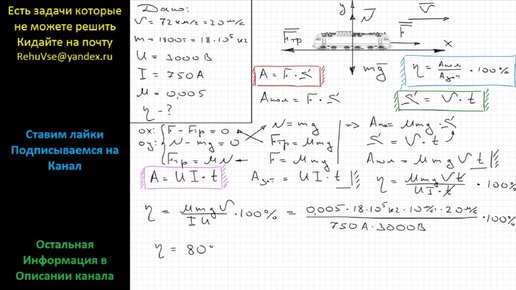 Есть задачи которые
не можете решить
Кидайте на почту
RehuVse@yandex.ru
Ставим лайки
Подписываемся на
Канал
Остальная
Информация в
Описании канала
Дано:
V = 72 км/ч = 20 м/с
m = 1800т = 18·10⁵ кг
U = 3000 В
I = 750 А
μ = 0,005
η - ?
y
N
V
Fтр
F
x
mg
A = F · S
Aпол = F · S
η = Aпол / Aзат · 100%
S = V · t
ox: F - Fтр = 0
oy: N - mg = 0
Fтр = μN
N = mg
Fтр = μmg
F = μmg
Aпол = μmg S
S = V · t
Aпол = μmg V t
A = U I · t
Aзат = U I · t
η = μmg V t / U I · t · 100%
η = μmg V / I U · 100% = 0,005 · 18·10⁵ кг · 10 м/с² · 20 м/с / 750 А · 3000 В · 100%
η = 80